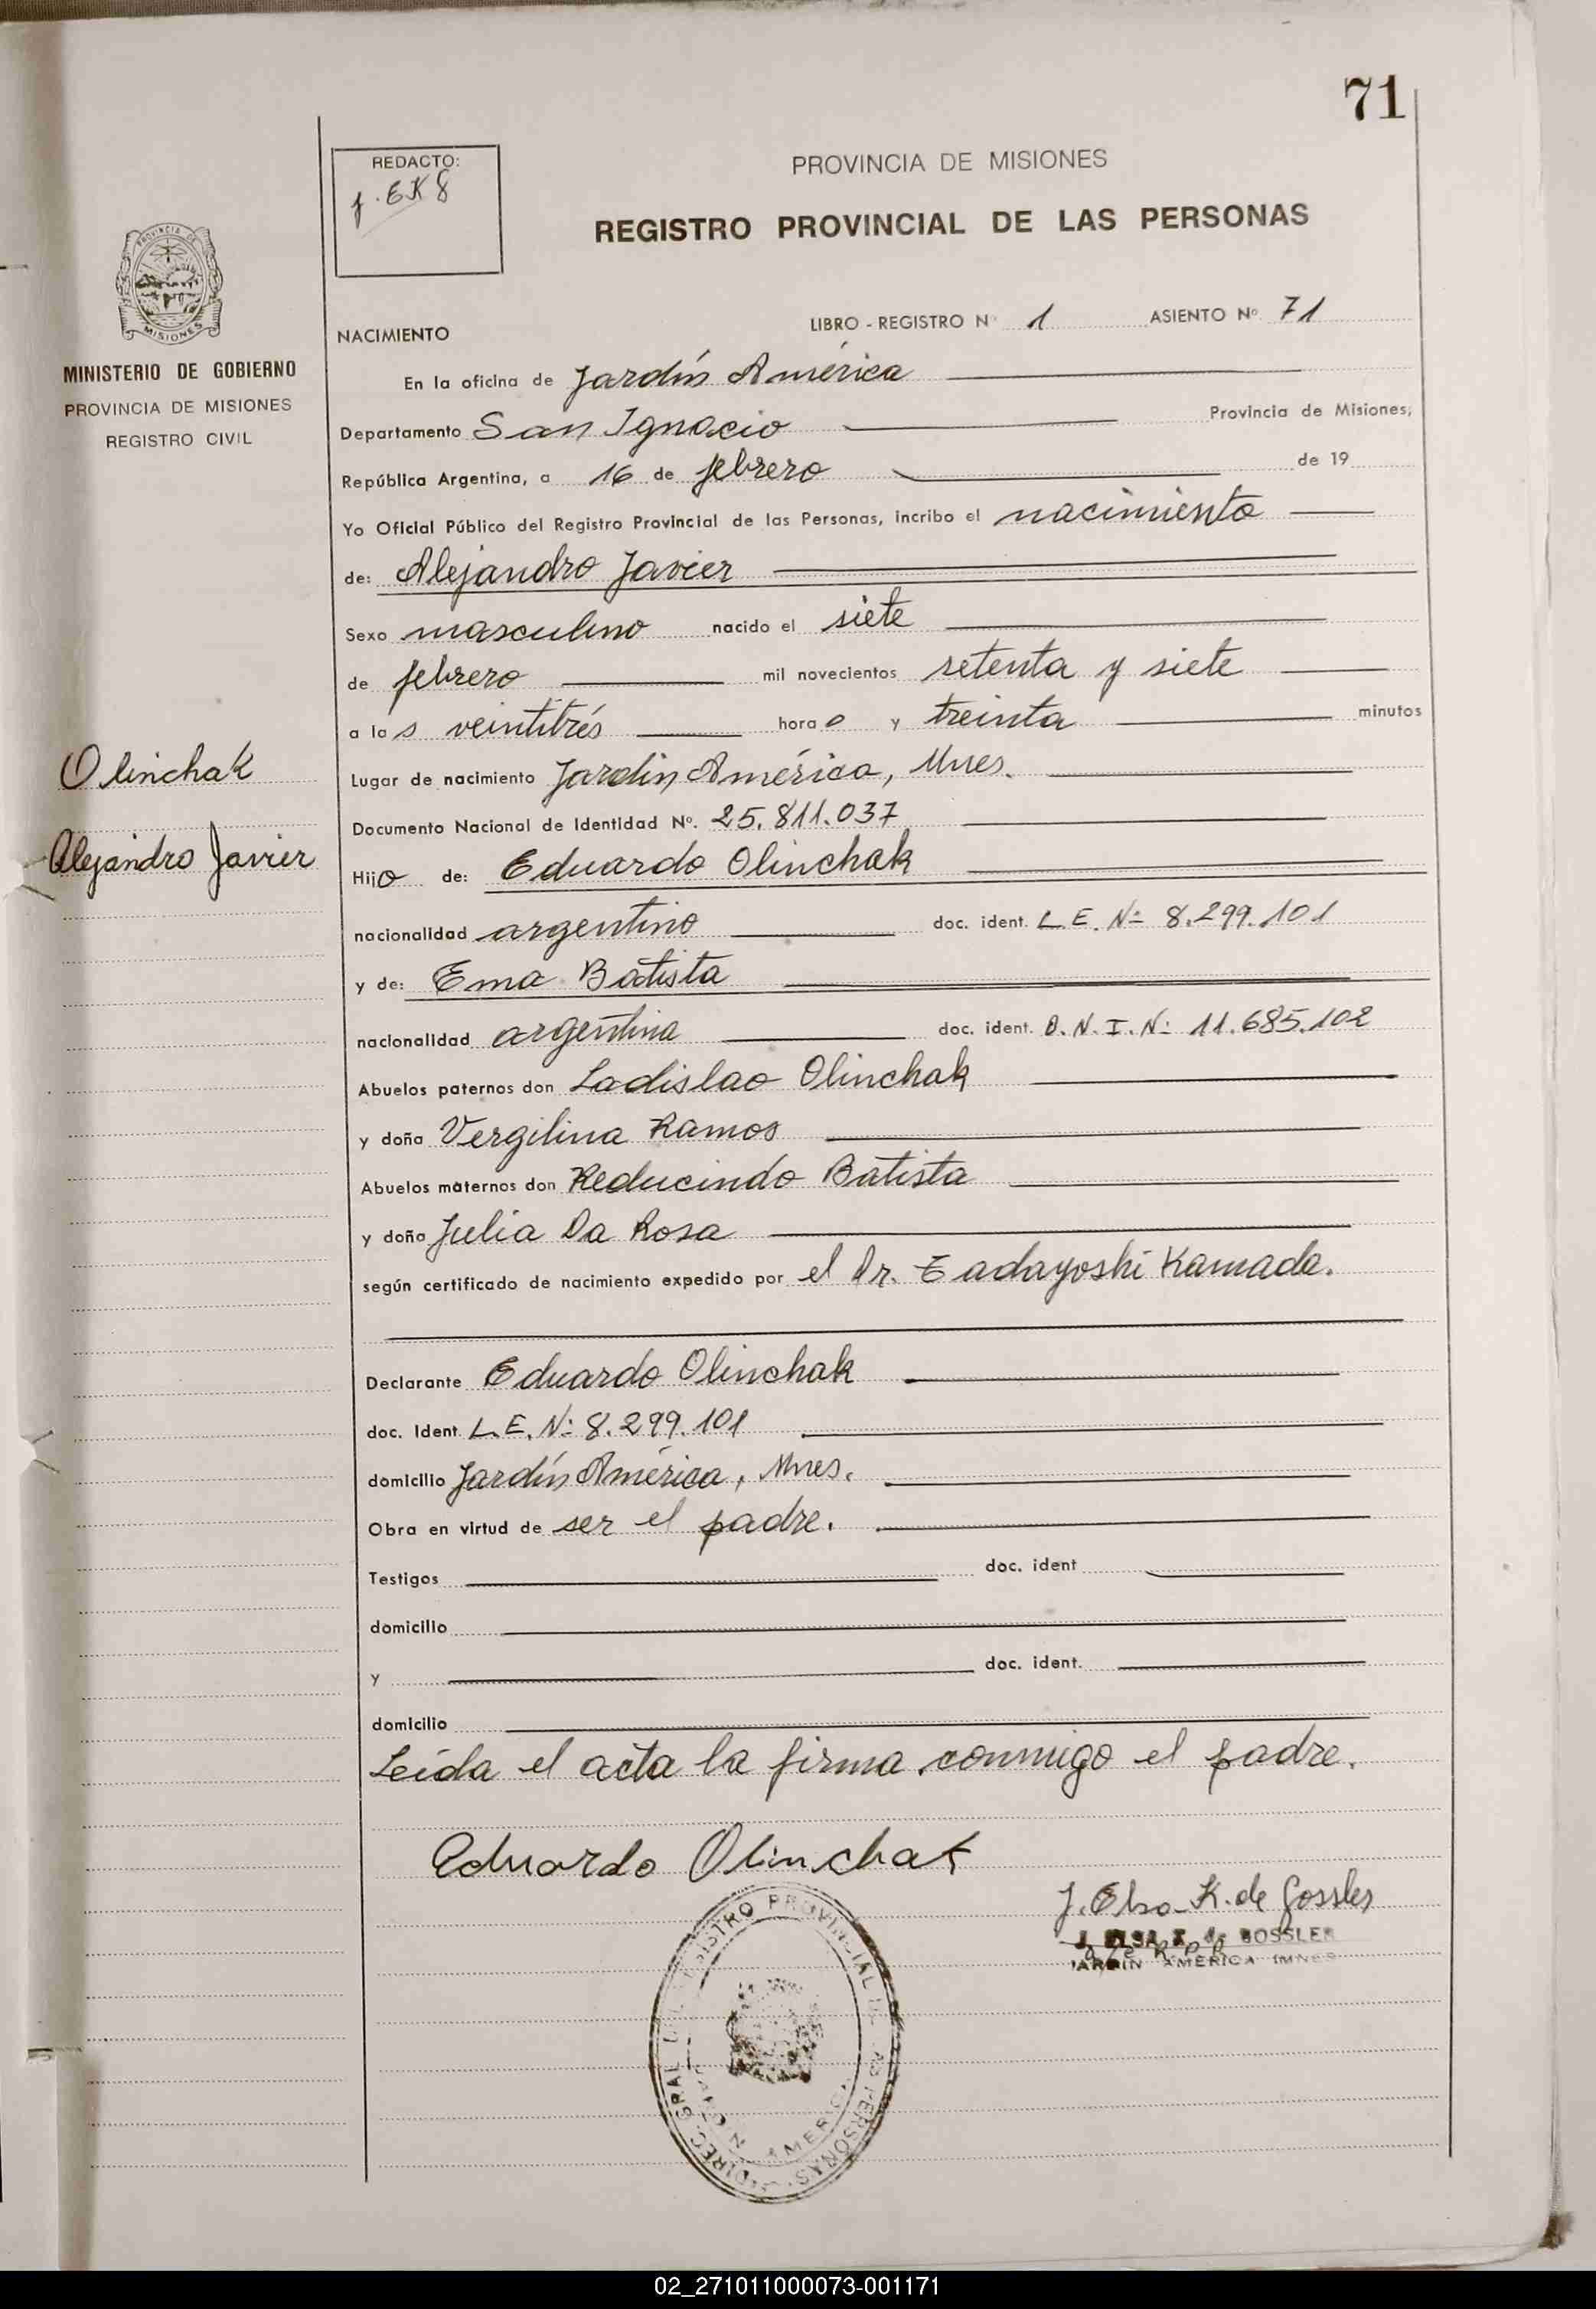 71
REDACTO:
J. EK8
PROVINCIA DE MISIONES
REGISTRO PROVINCIAL DE LAS PERSONAS
PROVINCIA DE
MISIONES
MINISTERIO DE GOBIERNO
PROVINCIA DE MISIONES
REGISTRO CIVIL
NACIMIENTO LIBRO - REGISTRO Nº 1 ASIENTO Nº 71
En la oficina de Jardín América
Departamento San Ignacio Provincia de Misiones,
República Argentina, a 16 de febrero de 19
Yo Oficial Público del Registro Provincial de las Personas, incribo el nacimiento
de: Alejandro Javier
Sexo masculino nacido el siete
de febrero mil novecientos setenta y siete
a las veintitrés hora y treinta minutos
Olinchak
Alejandro Javier
Lugar de nacimiento Jardín América, Mnes.
Documento Nacional de Identidad Nº. 25.811.037
Hijo de: Eduardo Olinchak
nacionalidad argentino doc. ident. L.E. Nº 8.299.101
y de: Ema Batista
nacionalidad argentina doc. ident. D.N.I. Nº 11.685.102
Abuelos paternos don Ladislao Olinchak
y doña Vergilina Ramos
Abuelos maternos don Reducindo Batista
y doña Julia Da Rosa
según certificado de nacimiento expedido por el Dr. Tadayoshi Kamada.
Declarante Eduardo Olinchak
doc. Ident. L.E. Nº 8.299.101
domicilio Jardín América, Mnes.
Obra en virtud de ser el padre.
Testigos doc. ident
domicilio
y doc. ident.
domicilio
Leída el acta la firma conmigo el padre.
Eduardo Olinchak
J. Elsa K. de Gossler
J. ELSA K. de GOSSLER
JARDIN AMERICA (MNES
DIREC. GRAL DE REGISTRO PROVINCIAL DE LAS PERSONAS
JARDIN AMERICA
02_271011000073-001171